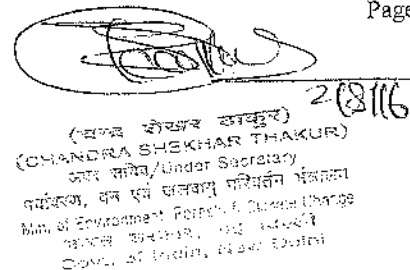 Page
2/8/16
(चन्द्र शेखर ठाकुर)
(CHANDRA SHEKHAR THAKUR)
अवर सचिव/Under Secretary
पर्यावरण, वन एवं जलवायु परिवर्तन मंत्रालय
Min. of Environment, Forest & Climate Change
भारत सरकार, नई दिल्ली
Govt. of India, New Delhi